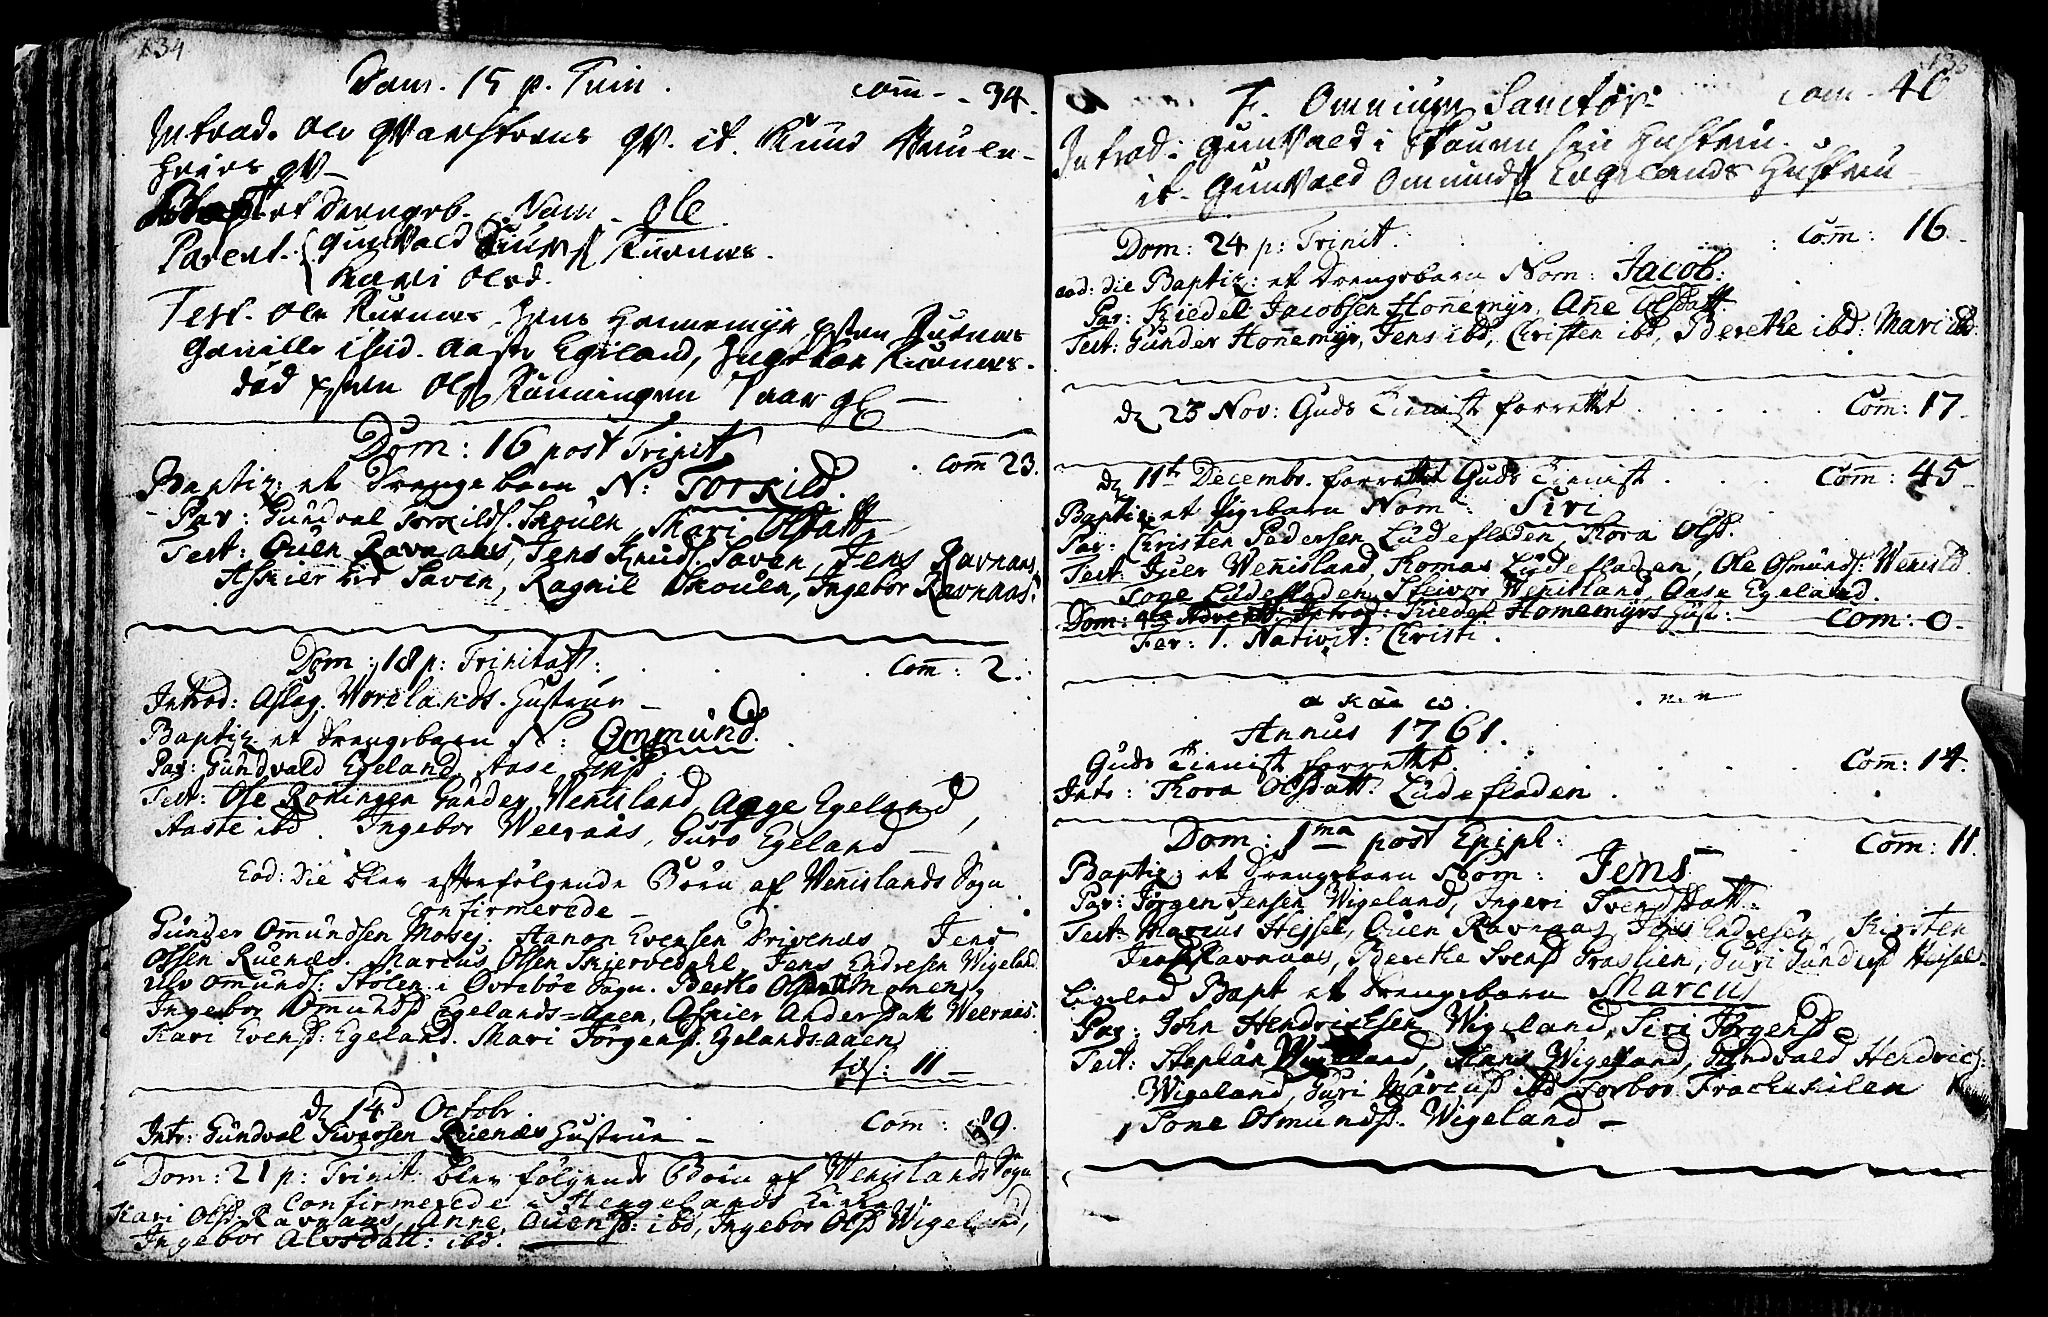 134
Dom. 15 p. Trin.
Com̄ - - 34.
Introd. Ole qvarsteens qv. it. Knud
heies qv -
Bapt et Drengeb. Nom - Ole
Parent. Gunvald Siurs Ruenes.
Kari Olsd.
Test. Ole Ruenes. Jens Honnemyr Osten Ruenes
Gunille ibid. Aaste Egeland, Ingebor Ruenes.
død Osten Ols Rønningen 7 aar gl -
Dom: 16 post Trinit
Com̄ 23.
Baptiz: et Drengebarn N: Torkild.
Par: Gundval Torkilds. Skouen, Mari Olsdatt
Test: Ouen Ravnaas, Jens Knuds. Saven, Jens Ravnaas,
Askier Saven, Ragnil Skouen, Ingebor Ravnaas:
Dom: 18 p: Trinitatis:
Com̄: 2.
Introd: Aslag Vorelands Hustrue -
Baptiz et Drengebarn N: Ommund.
Par: Gundvald Egeland, Aase Jensd.
Test: Ole Roningen Gunder Wen̄island, Aage Egeland,
Aaste ibd. Ingebor Weeraas, Guro Egeland -
Eod: die blev efterfølgende Børn af Wen̄islands Sogn
Confirmerede -
Gunder Om̄undsen Mosej. Aanon Evensen Drivenes Jens
Olsen Ruenes. Marcus Olsen Skiervedahl, Jens Endresen Wigeland
Ulv Omunds: Stolen i Øvrebøe Sogn. Berthe Olsdatt Monen,
Ingebor Omundsd Egelands-aaen, Asnier Andersdatt Weeraas:
Kari Evensd: Egeland. Mari Jørgensd. Egelandsaaen
tils: 11 -
d 14d Octobr.
Com̄: 89.
Intr: Gundval Siversen Ruenes Hustrue -
Dom: 21 p: Trinit. blev følgende Børn af Wen̄islands Sogn
Confirmerede i Hengelands Kirke
Kari Olsd. Ravnaas, Anne Ouensd: ibd, Ingebor Olsd Wigeland,
Ingebor Alvsdatt: ibd.
135
F. Omnium Sanctor:
Com - 40
Introd: Gunvald i Skouen sin Hustru.
it. Gunvald Omunds Egelands Hustru -
Dom: 24 p: Trinit.
Com̄: 16.
eod: die Baptiz: et Drengebarn Nom: Jacob:
Par: Kiedel Jacobsen Hon̄emyr. An̄e Olsdatt
Test: Gunder Hon̄emyr, Jens ibd, Christen ibd, Berethe ibd: Mari ibd:
d 23 Nov: Guds Tienist forrettet
Com̄: 17.
d 11te Decembr. forrettet Guds Tienist
Com̄: 45 -
Baptiz: et Pigebarn Nom: Siri
Par: Christen Pedersen Ludefladen, Thora Olsd.
Test: Iver Wen̄island, Thomas Ludefladen, Ole Osmunds: Wen̄isld
Tone Ludefladen, Wen̄island, Aase Egeland.
Dom: 4ta Advent: Introd: Kiedel Hon̄emyrs Hust:
Com: 0 -
Fer: 1. Nativit: Christi.
Annus 1761.
Guds Tienist forrettet.
Com̄: 14.
Intr: Thora Olsdatt Ludefladen.
Dom: 1ma post Epiph:
Com̄: 11.
Baptiz: et Drengebarn Nom: Jens
Par: Jørgen Jensen Wigeland, Ingeri Svendsdatt:
Test: Marcus Hejsel, Ouen Ravnaas, Jens Endresen, Kirsten
Jensd Ravnaas, Berthe Svensd Graslien, Guri Gundersd Heisel -
Ligeled Bapt et Drengebarn Marcus
Par: John Hendrichsen Wigeland, Siri Jørgensd
Test: Staphan Wigeland, Hans Wigeland, Gundvald Hendrics:
Wigeland, Guri Marcusd ibd Torbor Frachekilen
Tone Osmundsd. Wigeland -